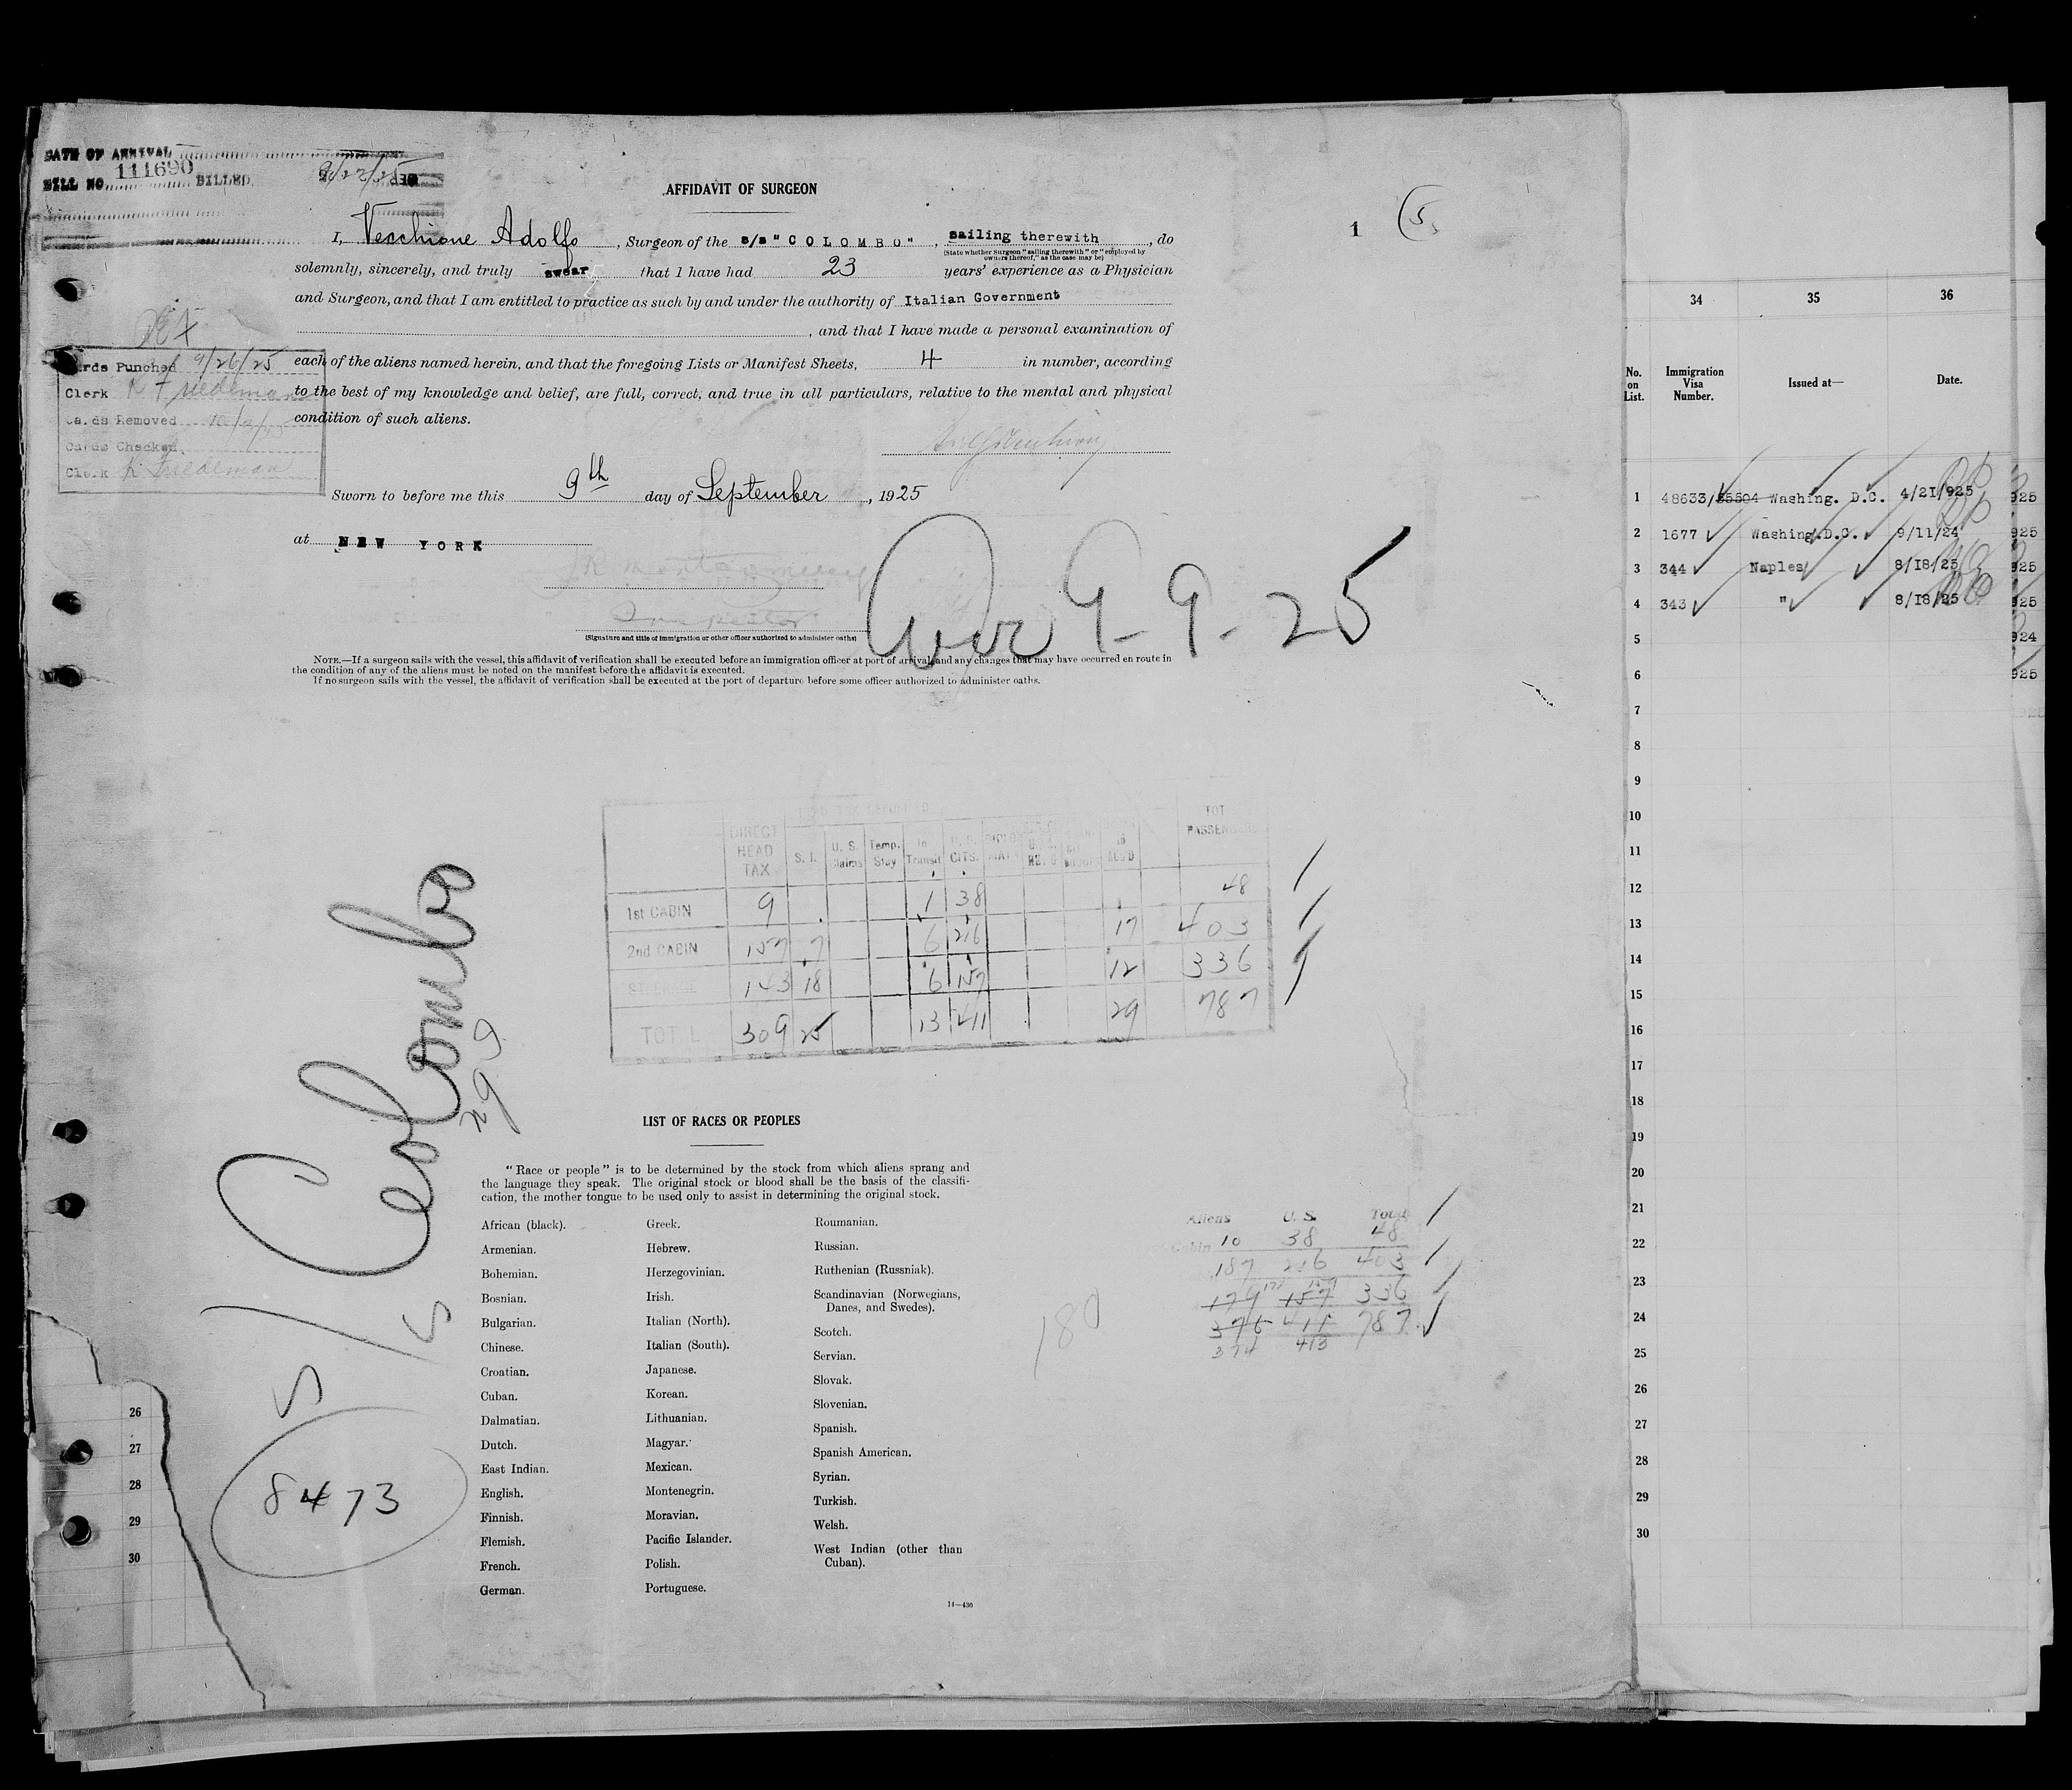 DATE OF ARRIVAL
BILL NO. 111690 BILLED
AFFIDAVIT OF SURGEON
1 (5)
I, Vecchione Adolfo, Surgeon of the s/s "COLOMBO", sailing therewith, do
(State whether Surgeon "sailing therewith" or "employed by owners thereof," as the case may be)
solemnly, sincerely, and truly swear that I have had 23 years' experience as a Physician
and Surgeon, and that I am entitled to practice as such by and under the authority of Italian Government
, and that I have made a personal examination of
each of the aliens named herein, and that the foregoing Lists or Manifest Sheets, 4 in number, according
to the best of my knowledge and belief, are full, correct, and true in all particulars, relative to the mental and physical
condition of such aliens.
Cards Punched 9/26/25
Clerk K Friedeman
Cards Removed
Cards Checked
Clerk K. Friedeman
Sworn to before me this 9th day of September, 1925
at NEW YORK
Inspector
(Signature and title of immigration or other officer authorized to administer oaths)
Arr 9-9-25
NOTE.—If a surgeon sails with the vessel, this affidavit of verification shall be executed before an immigration officer at port of arrival, and any changes that may have occurred en route in
the condition of any of the aliens must be noted on the manifest before the affidavit is executed.
If no surgeon sails with the vessel, the affidavit of verification shall be executed at the port of departure before some officer authorized to administer oaths.
DIRECT HEAD TAX S. I. U. S. Claims Temp. Stay In Transit U. S. CITS. TOT PASSENGERS
1st CABIN 9 1 38 48
2nd CABIN 157 7 6 216 17 403
STEERAGE 143 18 6 157 12 336
TOTAL 309 25 13 411 29 787
S/S Colombo
299
8473
LIST OF RACES OR PEOPLES
"Race or people" is to be determined by the stock from which aliens sprang and
the language they speak. The original stock or blood shall be the basis of the classifi-
cation, the mother tongue to be used only to assist in determining the original stock.
African (black).
Armenian.
Bohemian.
Bosnian.
Bulgarian.
Chinese.
Croatian.
Cuban.
Dalmatian.
Dutch.
East Indian.
English.
Finnish.
Flemish.
French.
German.
Greek.
Hebrew.
Herzegovinian.
Irish.
Italian (North).
Italian (South).
Japanese.
Korean.
Lithuanian.
Magyar.
Mexican.
Montenegrin.
Moravian.
Pacific Islander.
Polish.
Portuguese.
Roumanian.
Russian.
Ruthenian (Russniak).
Scandinavian (Norwegians,
Danes, and Swedes).
Scotch.
Servian.
Slovak.
Slovenian.
Spanish.
Spanish American.
Syrian.
Turkish.
Welsh.
West Indian (other than
Cuban).
14—430
180
Aliens U. S. Total
Cabin 10 38 48
187 216 403
179 177 157 159 336
376 411 787
374 413
26
27
28
29
30
34 35 36
No. on List. Immigration Visa Number. Issued at— Date.
1 48633/35504 Washing. D.C. 4/21/925
2 1677 Washing.D.C. 9/11/24
3 344 Naples 8/18/25
4 343 " 8/18/25
5
6
7
8
9
10
11
12
13
14
15
16
17
18
19
20
21
22
23
24
25
26
27
28
29
30
925
925
925
925
924
925